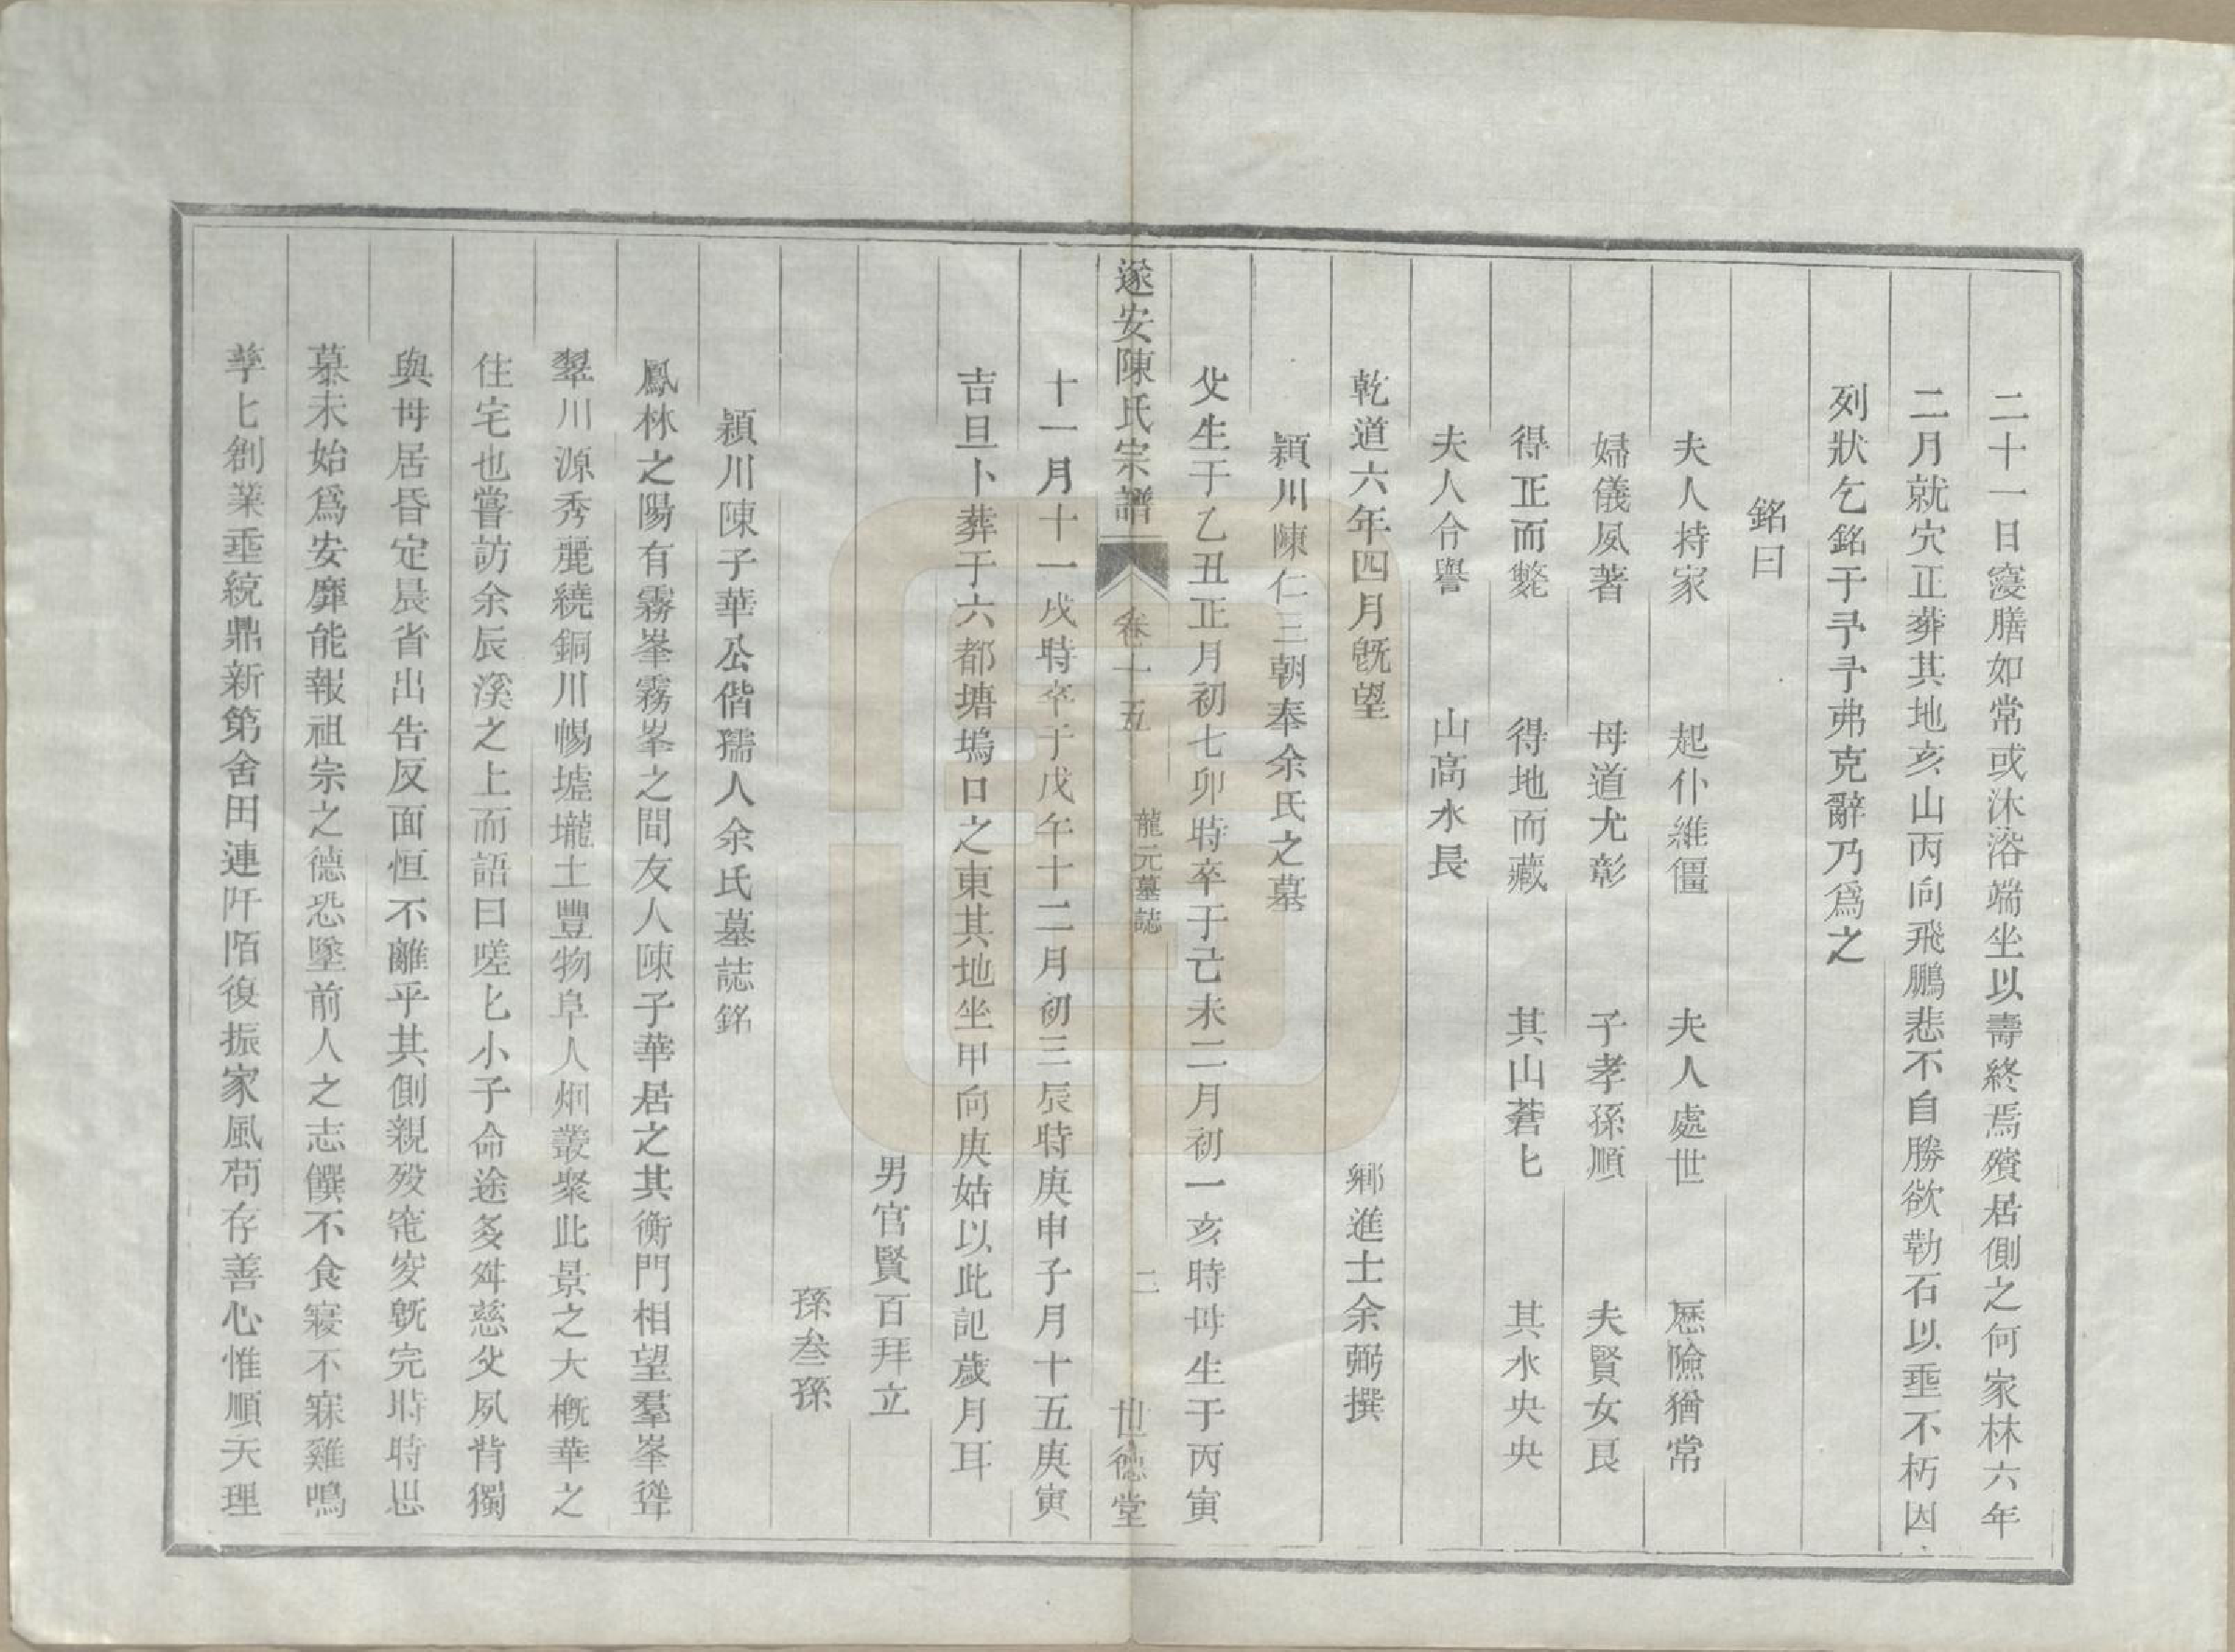 二十一日寢膳如常或沐浴端坐以壽終焉殯居側之何家林六年
二月就穴正葬其地亥山丙向飛鵬悲不自勝欲勒石以垂不朽因
列狀乞銘于予予弗克辭乃爲之
銘曰
夫人持家 起仆維僵 夫人處世 歷險猶常
婦儀夙著 母道尤彰 子孝孫順 夫賢女良
得正而斃 得地而藏 其山蒼匕 其水央央
夫人令譽 山高水長
乾道六年四月旣望 鄉進士余㢸撰
穎川陳仁三朝奉余氏之墓
父生于乙丑正月初七卯時卒于己未二月初一亥時母生于丙寅
遂安陳氏宗譜 卷十五 龍元墓誌 二 世德堂
十一月十一戌時卒于戊午十二月初三辰時庚申子月十五庚寅
吉旦卜葬于六都塘塢口之東其地坐甲向庚姑以此記歲月耳
男官賢百拜立
孫叁孫
穎川陳子華公偕孺人余氏墓誌銘
鳳林之陽有霧峯霧峯之間友人陳子華居之其衡門相望羣峯聳
翠川源秀麗繞銅川暢墟壠土豐物阜人烟叢聚此景之大槪華之
住宅也嘗訪余辰溪之上而語曰嗟匕小子命途多舛慈父夙背獨
與母居昏定晨省出告反面恒不離乎其側親歿窀穸旣完時時思
慕未始爲安靡能報祖宗之德恐墜前人之志饌不食寢不寐雞鳴
孳匕創業垂統鼎新第舍田連阡陌復振家風苟存善心惟順天理